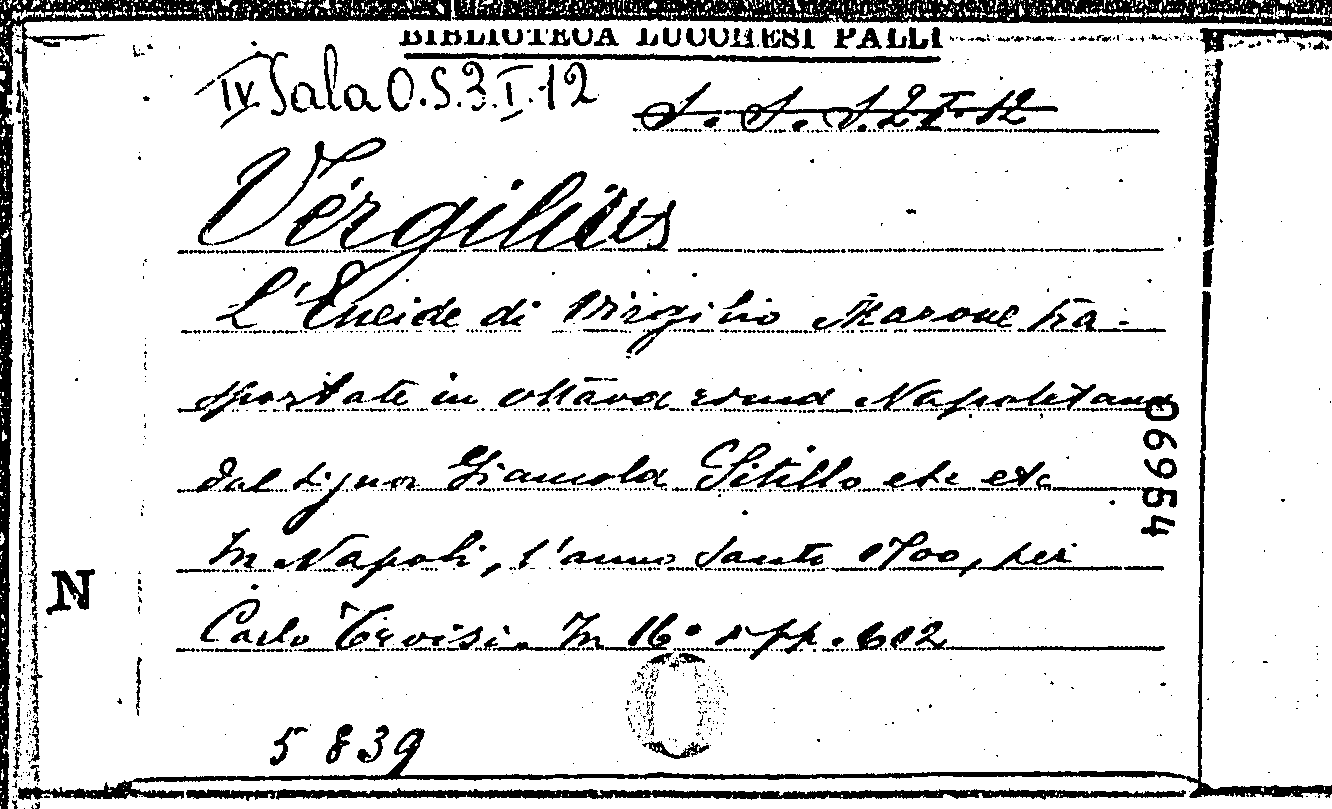 BIBLIOTECA LUCCHESI PALLI
IV Sala O.S.3.I.12
S. S. S. 2 I. 12
Vergilius
L'Eneide di Virgilio Marone tra-
sportate in ottava rima Napoletana
dal signor Giancola Sitillo etc etc
In Napoli, l'anno Santo 1700, per
Carlo Trevisi. In 16° pp. 602
06954
N
5839